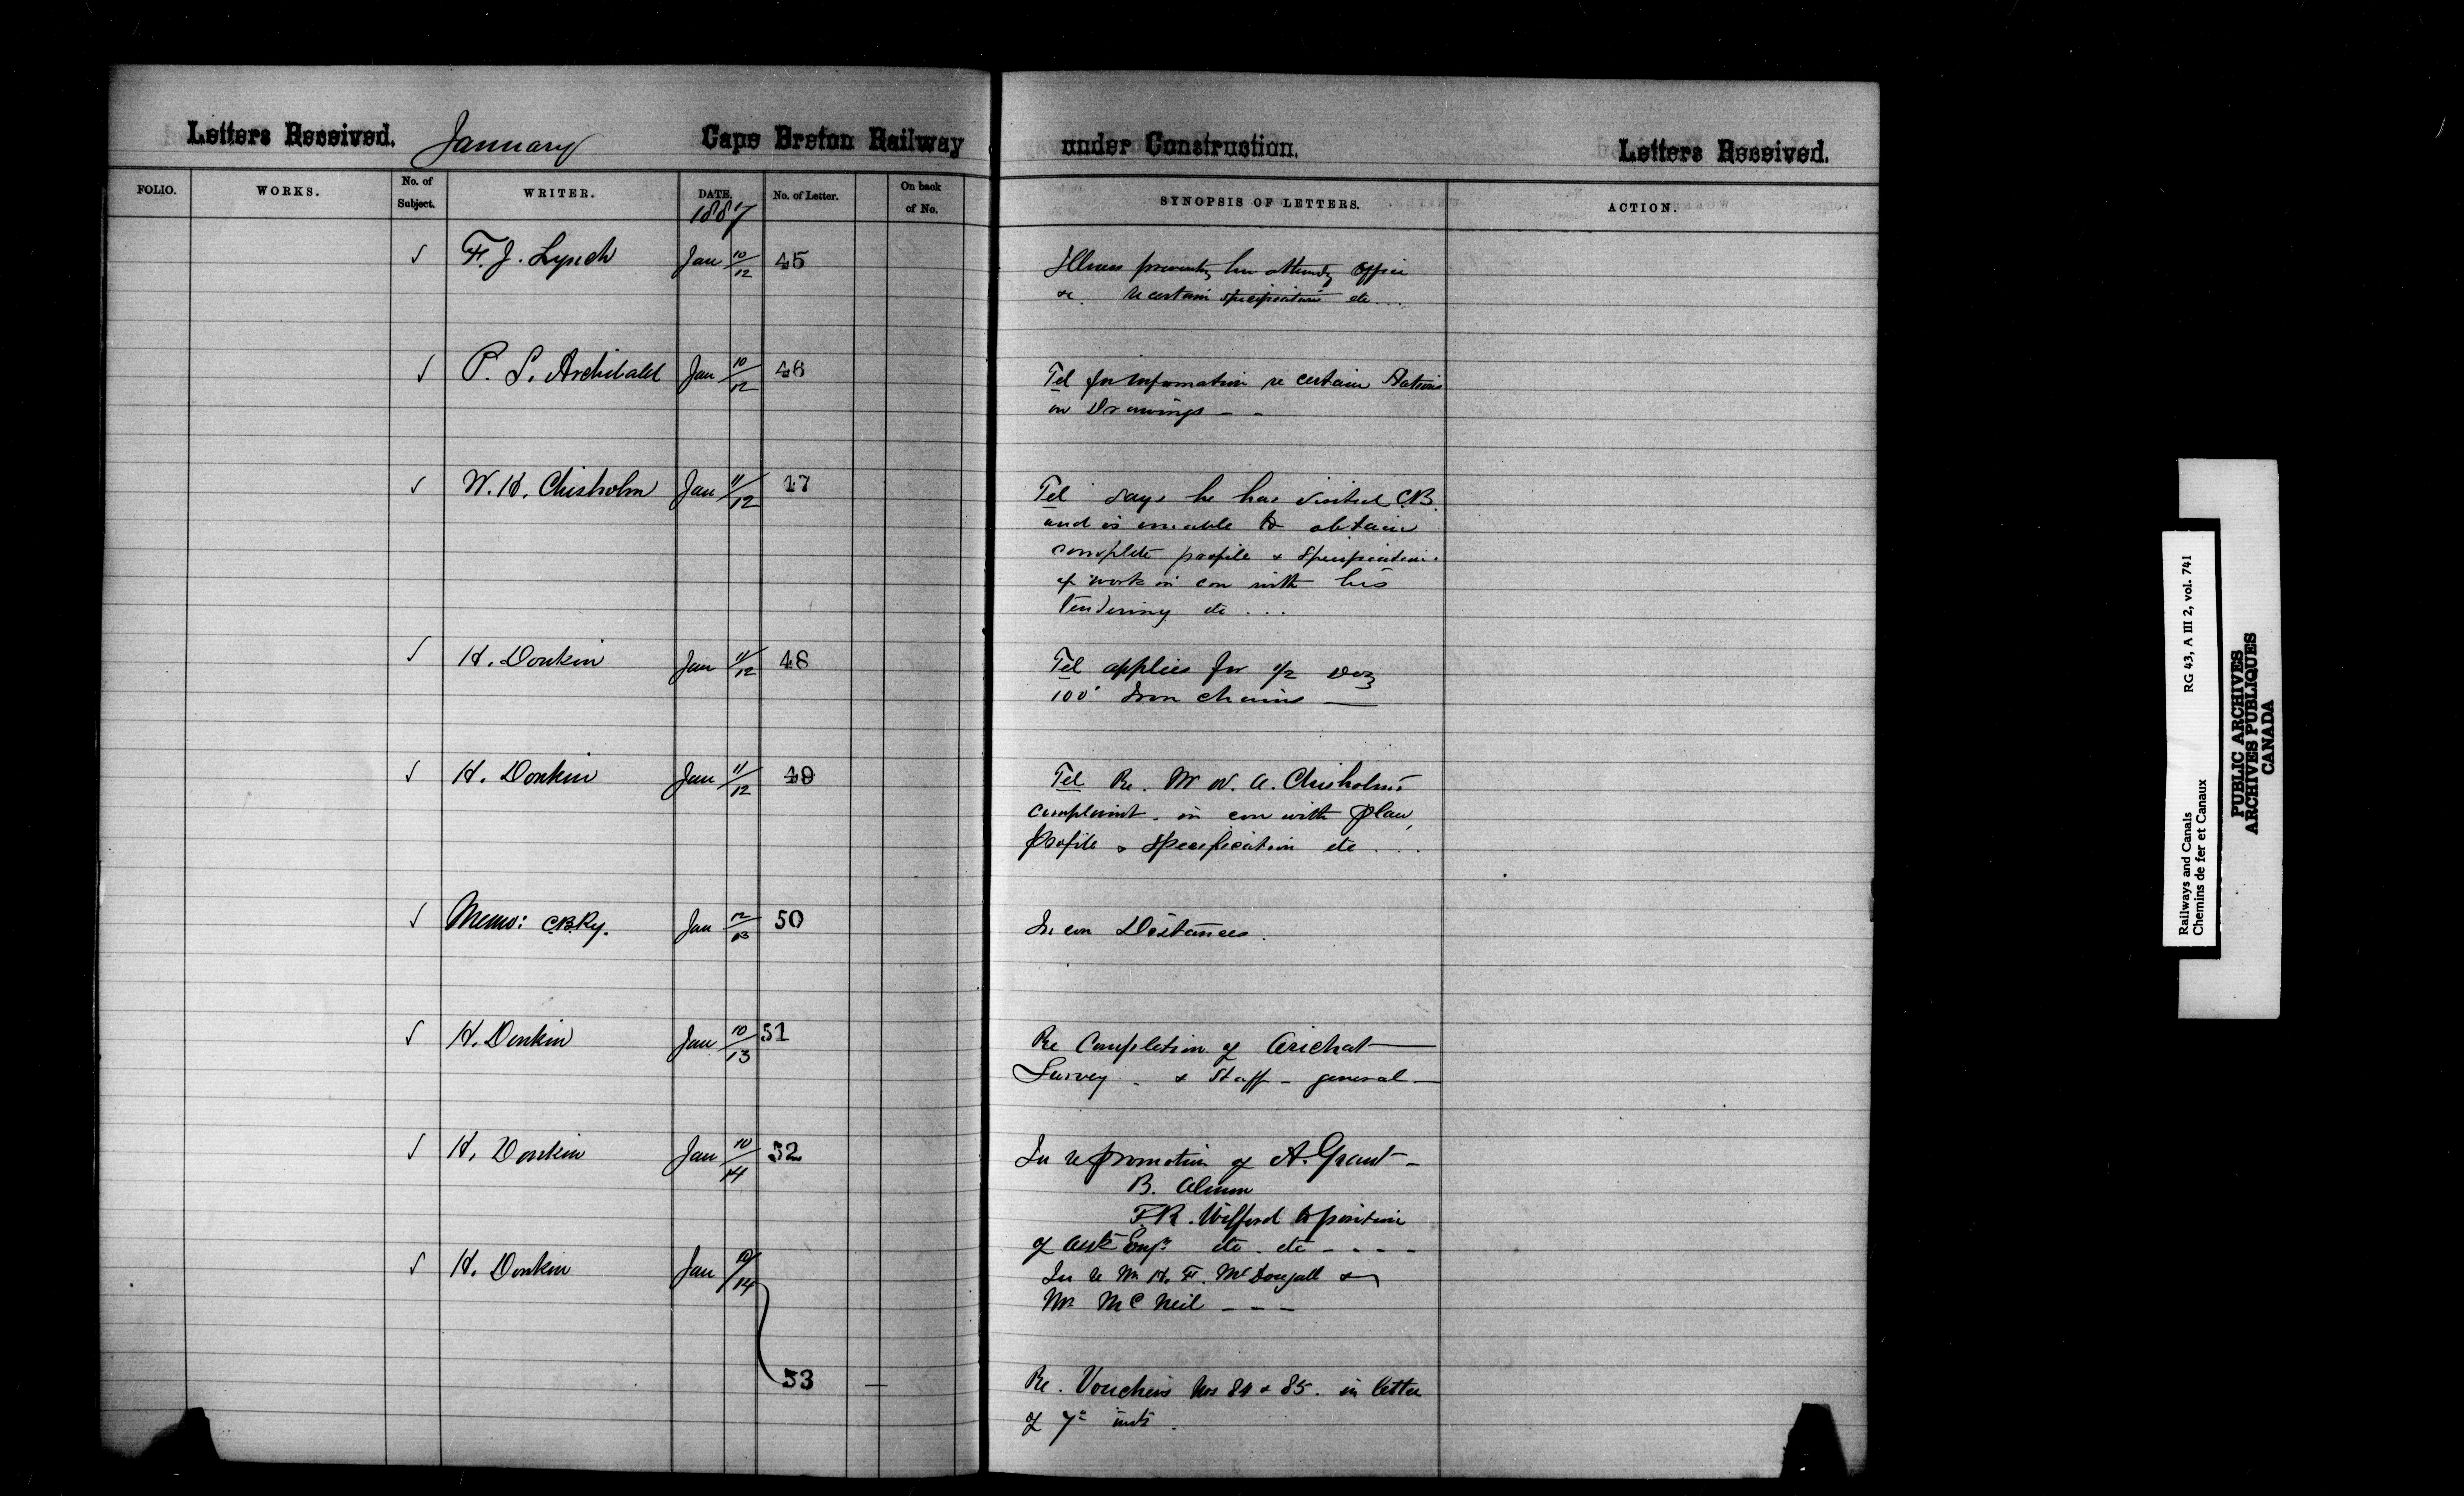 Letters Received. January Cape Breton Railway under Construction. Letters Received.
FOLIO. WORKS. No. of Subject. WRITER. DATE. No. of Letter. On back of No. SYNOPSIS OF LETTERS. ACTION.
1887
✓ F. J. Lynch Jan 10/12 45 Illness preventing him attending Office
&c. re certain specifications etc ...
✓ P. S. Archibald Jan 10/12 46 Tel for information re certain Stations
on Drawings – –
✓ W. H. Chisholm Jan 11/12 47 Tel says he has visited C.B.
and is unable to obtain
complete profile & specification.
of work in con with his
tendering etc ...
✓ H. Donkin Jan 11/12 48 Tel applies for 1/2 doz
100' Iron chains —
✓ H. Donkin Jan 11/12 49 Tel Re. Mr W. A. Chisholm's
complaint. in con with plan,
profile & specification etc ....
✓ Memo: C.B.Ry. Jan 12/13 50 In con Distances.
✓ H. Donkin Jan 10/13 51 Re Completion of Arichat —
Survey - & Staff - general —
✓ H. Donkin Jan 10/14 52 In re promotion of A. Grant –
B. Almon
F.R. Wilford to position
of Asst Engr etc. etc - - - -
✓ H. Donkin Jan /14 In re Mr H. F. McDougall &
Mr McNeil - - -
53 — Re. Vouchers Nos 84 & 85. in letter
of 7th inst.
Railways and Canals RG 43, A III 2, vol. 741
Chemins de fer et Canaux
PUBLIC ARCHIVES
ARCHIVES PUBLIQUES
CANADA